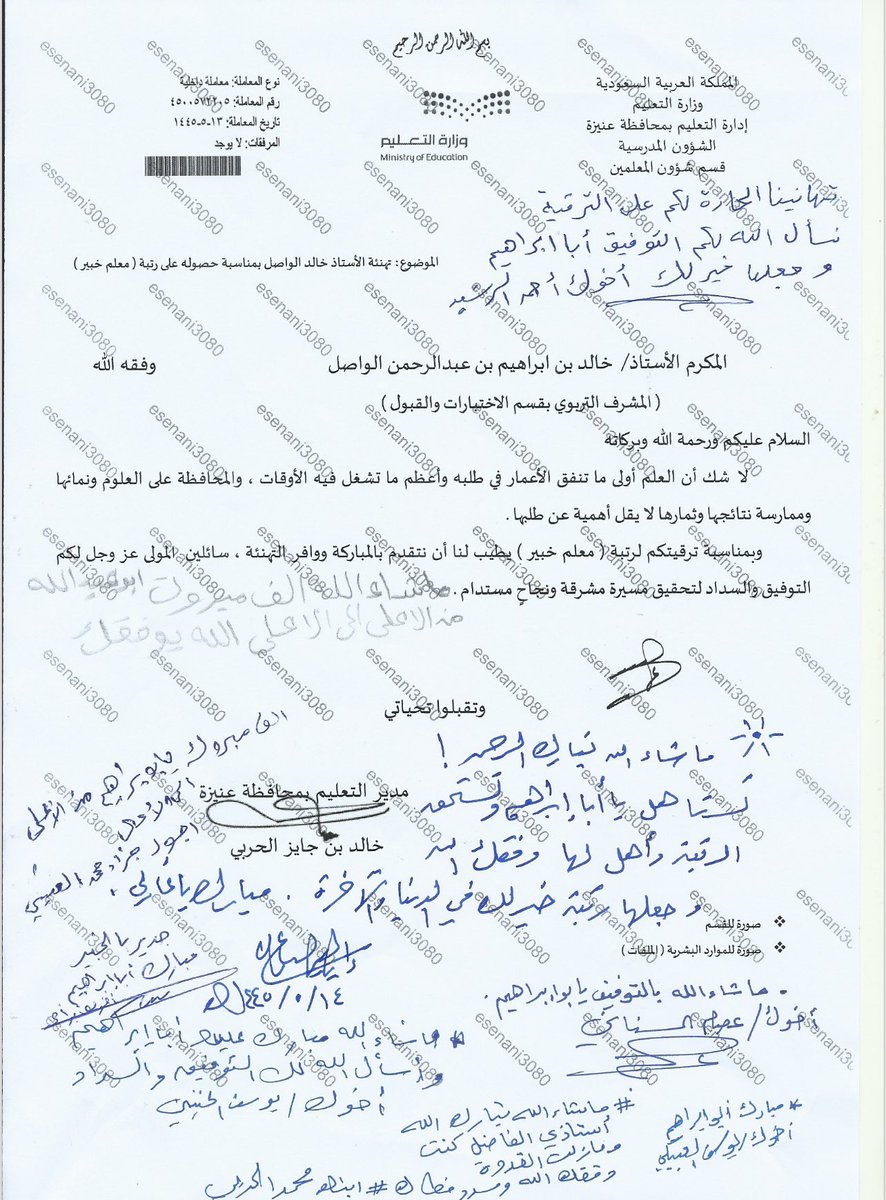 بسم الله الرحمن الرحيم
المملكة العربية السعودية
وزارة التعليم
إدارة التعليم بمحافظة عنيزة
الشؤون المدرسية
قسم شؤون المعلمين
وزارة التعليم
Ministry of Education
نوع المعاملة: معاملة داخلية
رقم المعاملة: ٤٥٠٠٥٧٢٢٠٥
تاريخ المعاملة: ١٣-٥-١٤٤٥
المرفقات: لا يوجد
تهانينا الحارة لكم على الترقية
نسأل الله لكم التوفيق أبا ابراهيم
و جعلها خير لك أخوك أحمد الرشيد
الموضوع: تهنئة الأستاذ خالد الواصل بمناسبة حصوله على رتبة ( معلم خبير )
المكرم الأستاذ/ خالد بن ابراهيم بن عبدالرحمن الواصل وفقه الله
( المشرف التربوي بقسم الاختبارات والقبول )
السلام عليكم ورحمة الله وبركاته
لا شك أن العلم أولى ما تنفق الأعمار في طلبه وأعظم ما تشغل فيه الأوقات ، والمحافظة على العلوم ونمائها
وممارسة نتائجها وثمارها لا يقل أهمية عن طلبها .
وبمناسبة ترقيتكم لرتبة ( معلم خبير ) يطيب لنا أن نتقدم بالمباركة ووافر التهنئة ، سائلين المولى عز وجل لكم
التوفيق والسداد لتحقيق مسيرة مشرقة ونجاحٍ مستدام .
ماشاء الله الف مبروك ابو عبد الله
من الاعلى الى الاعلى الله يوفقك
وتقبلوا تحياتي
مدير التعليم بمحافظة عنيزة
خالد بن جايز الحربي
ما شاء الله تبارك الرحمن !
تستاهل يا أبا إبراهيم وتستحق
الرتبة وأهل لها وفقك الله
و جعلها رتبة خير لك في الدنيا والآخرة . مبارك يا غالي .
الف مبروك يابو براهيم من الأعلى
محمد العبيسي
صورة للقسم
صورة للموارد البشرية ( الملفات )
جدير يا الخبير
مبارك أبا ابراهيم
ما شاء الله بالتوفيق يا بوابراهيم .
أخوك / عصام السناني
ما شاء الله مبارك عليك أبا إبراهيم
وأسأل الله لك التوفيق والسداد
أخوك / يوسف الخنيني
# ماشاء الله تبارك الله
أستاذي الفاضل كنت
ومازلت القدوة
وفقك الله وسدد خطاك # ابنك محمد الحربي
مبارك أبو ابراهيم
esenani3080